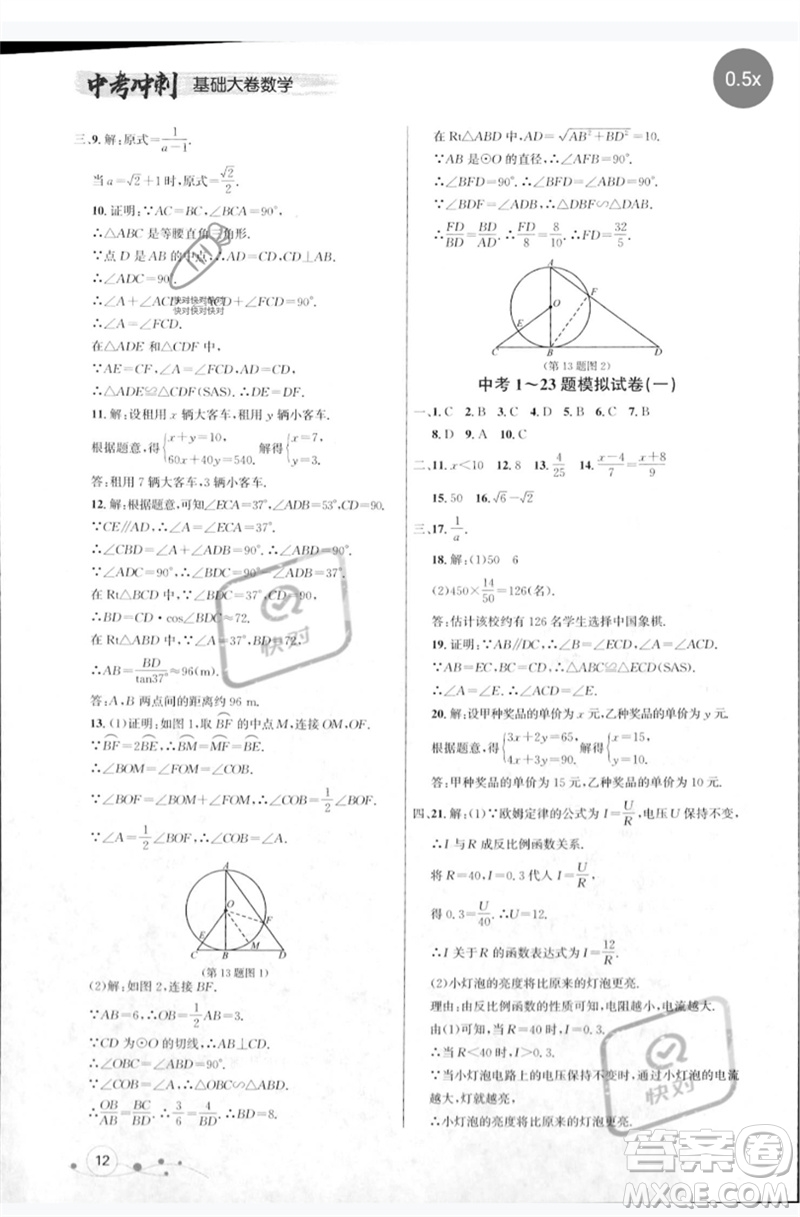 中考冲刺 基础大卷数学
0.5x
三、9. 解:原式=1/(a-1).
当a=√2+1时,原式=√2/2.
10. 证明:∵AC=BC,∠BCA=90°,
∴△ABC是等腰直角三角形.
∵点D是AB的中点,CD⊥AB.
∴∠ADC=90°.
∴∠A+∠ACD=∠ACD+∠FCD=90°.
∴∠A=∠FCD.
在△ADE和△CDF中,
∵AE=CF,
∴△ADE≌△CDF(SAS).∴DE=DF.
11. 解:设租用x辆大客车,租用y辆小客车.
根据题意,得{x+y=10, 60x+40y=540. 解得{x=7, y=3.
答:租用7辆大客车,3辆小客车.
12. 解:根据题意,可知∠ECA=37°,∠DCB=53°,CD=90.
∵CE∥AD,∴∠A=∠ECA=37°.
∴∠CBD=∠A+∠ACB=37°+
∴∠BDC=180°-∠CBD-∠DCB=90°.
在Rt△BCD中,∠DCB=53°,CD=90,
∴BD=CD·cos∠BCD≈72.
在Rt△ABD中,∠A=37°,BD=72,
∴AB=BD/tan37°≈96(m).
答:A,B两点间的距离约96 m.
13. (1)证明:如图1,取BF的中点M,连接OM,OF.
∵BF=2BE,∴BM=MF=BE,
∴∠BOM=∠FOM=∠COB.
∴∠BOF=∠BOM+∠FOM=2∠COB.
∵∠A=1/2∠BOF,∴∠COB=∠A.
A
O
F
E
M
C B D
(第13题图1)
(2)解:如图2,连接BF.
∵AB=6,∴OB=1/2AB=3.
∵CD为⊙O的切线,∴AB⊥CD.
∴∠OBC=∠ABD=90°.
∵∠COB=∠A,∴△OBC∽△ABD.
∴OB/AB=BC/BD.∴3/6=4/BD.∴BD=8.
12
在Rt△ABD中,AD=√(AB²+BD²)=10.
∵AB是⊙O的直径,∴∠AFB=90°.
∴∠BFD=90°.
∵∠BFD=∠ABD=90°,∠BDF=∠ADB,
∴△DBF∽△DAB.
∴FD/BD=BD/AD.∴FD/8=8/10.∴FD=32/5.
A
F
O
E
C B D
(第13题图2)
中考1~23题模拟试卷(一)
一、1. C 2. B 3. C 4. D 5. C 6. C 7. B
8. D 9. A 10. C
二、11. x<10 12. 8 13. 4/25 14. (x-4)/7=(x+8)/9
15. 50 16. √6-√2
三、17. 1/a.
18. 解:(1)50 6
(2)450×14/50=126(名).
答:估计该校约有126名学生选择中国象棋.
19. 证明:∵AB∥DC,∴∠A=∠DCE.
∵AB=EC,AC=CD,∴△ABC≌△CED(SAS).
∴∠ACB=∠E.∴BC∥DE.
20. 解:设甲种奖品的单价为x元,乙种奖品的单价为y元.
根据题意,得{3x+2y=65, 4x+3y=90. 解得{x=15, y=10.
答:甲种奖品的单价为15元,乙种奖品的单价为10元.
四、21. 解:(1)∵欧姆定律的公式为I=U/R,电压U保持不变,
∴I与R成反比例函数关系.
将R=40,I=0.3代入I=U/R,
得0.3=U/40.∴U=12.
∴I关于R的函数表达式为I=12/R.
(2)小灯泡的亮度将比原来的灯泡更亮.
理由:由反比例函数的性质可知,电阻越小,电流越大.
由(1)可知,当R=40时,I=0.3.
∴当R<40时,I>0.3.
∵当小灯泡电路上的电压保持不变时,通过小灯泡的电流
越大,灯就越亮.
∴小灯泡的亮度将比原来的灯泡更亮.
快对
快对
答案圈
MXQE.COM